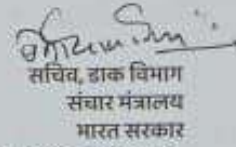 सचिव, डाक विभाग
संचार मंत्रालय
भारत सरकार